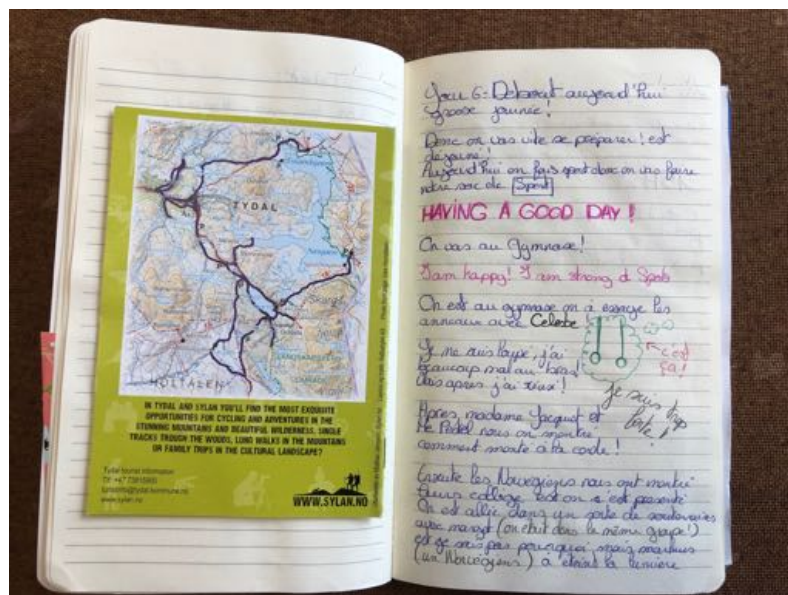 TYDAL
HOLTÅLEN
IN TYDAL AND SYLAN YOU'LL FIND THE MOST EXQUISITE
OPPORTUNITIES FOR CYCLING AND ADVENTURES IN THE
STUNNING MOUNTAINS AND BEAUTIFUL WILDERNESS. SINGLE
TRACKS TROUGH THE WOODS, LONG WALKS IN THE MOUNTAINS
OR FAMILY TRIPS IN THE CULTURAL LANDSCAPE?
Tydal tourist information
www.sylan.no
WWW.SYLAN.NO
Jour 6: Debout aujourd'hui
grosse journée!
Donc on vas vite se préparer! est
déjeuné!
Aujourd'hui on fais sport donc on vas faire
notre sac de Sport
HAVING A GOOD DAY!
On vas au Gymnase!
I am happy! I am strong d Sport
On est au gymnase on a essayé les
anneaux avec Celeste
c'est
ça!
Je me suis loupé, j'ai
beaucoup mal au bras!
Mais après j'ai réussi!
je suis trop
forte!
Après, madame Jacquot et
nous on montré
comment monté à la corde!
Ensuite les Norvégiens nous ont montré
leurs collège est on s'est présenté
On est allée dans un sorte de souterraires
avec margot (on était dans le même groupe!)
est je sais pas pourquoi mais
(un Norvégiens) a éteint la lumière